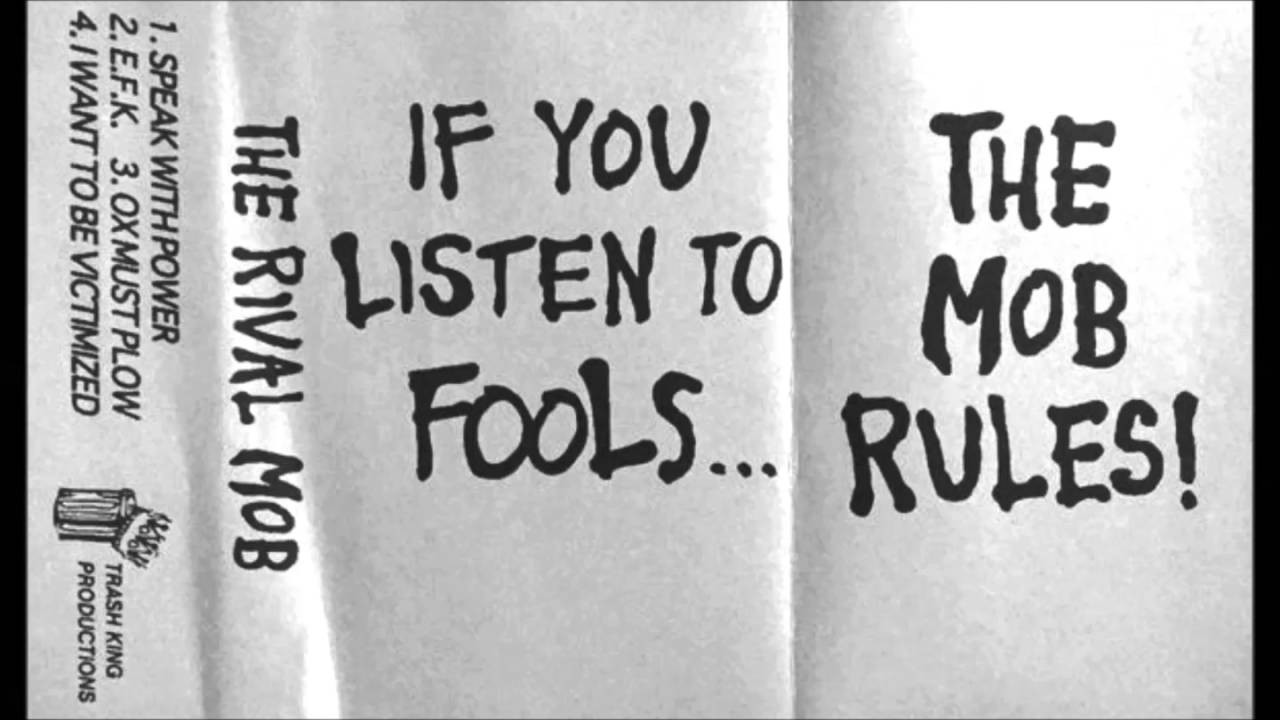 1. SPEAK WITH POWER
2. E.F.K. 3. OX MUST PLOW
4. I WANT TO BE VICTIMIZED
TRASH KING
PRODUCTIONS
THE RIVAL MOB
IF YOU
LISTEN TO
FOOLS...
THE
MOB
RULES!